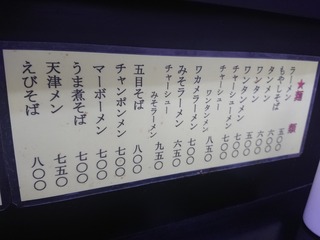 ★麺類
ラーメン 五〇〇
もやしそば
タンメン 六〇〇
ワンタン
ワンタンメン
チャーシューメン 七〇〇
チャーシュー
ワンタンメン 八五〇
ワカメラーメン 七〇〇
みそラーメン 六五〇
チャーシュー
みそラーメン 九五〇
五目そば 八〇〇
チャンポンメン 七〇〇
マーボーメン 七〇〇
うま煮そば 七〇〇
天津メン 七五〇
えびそば 八〇〇